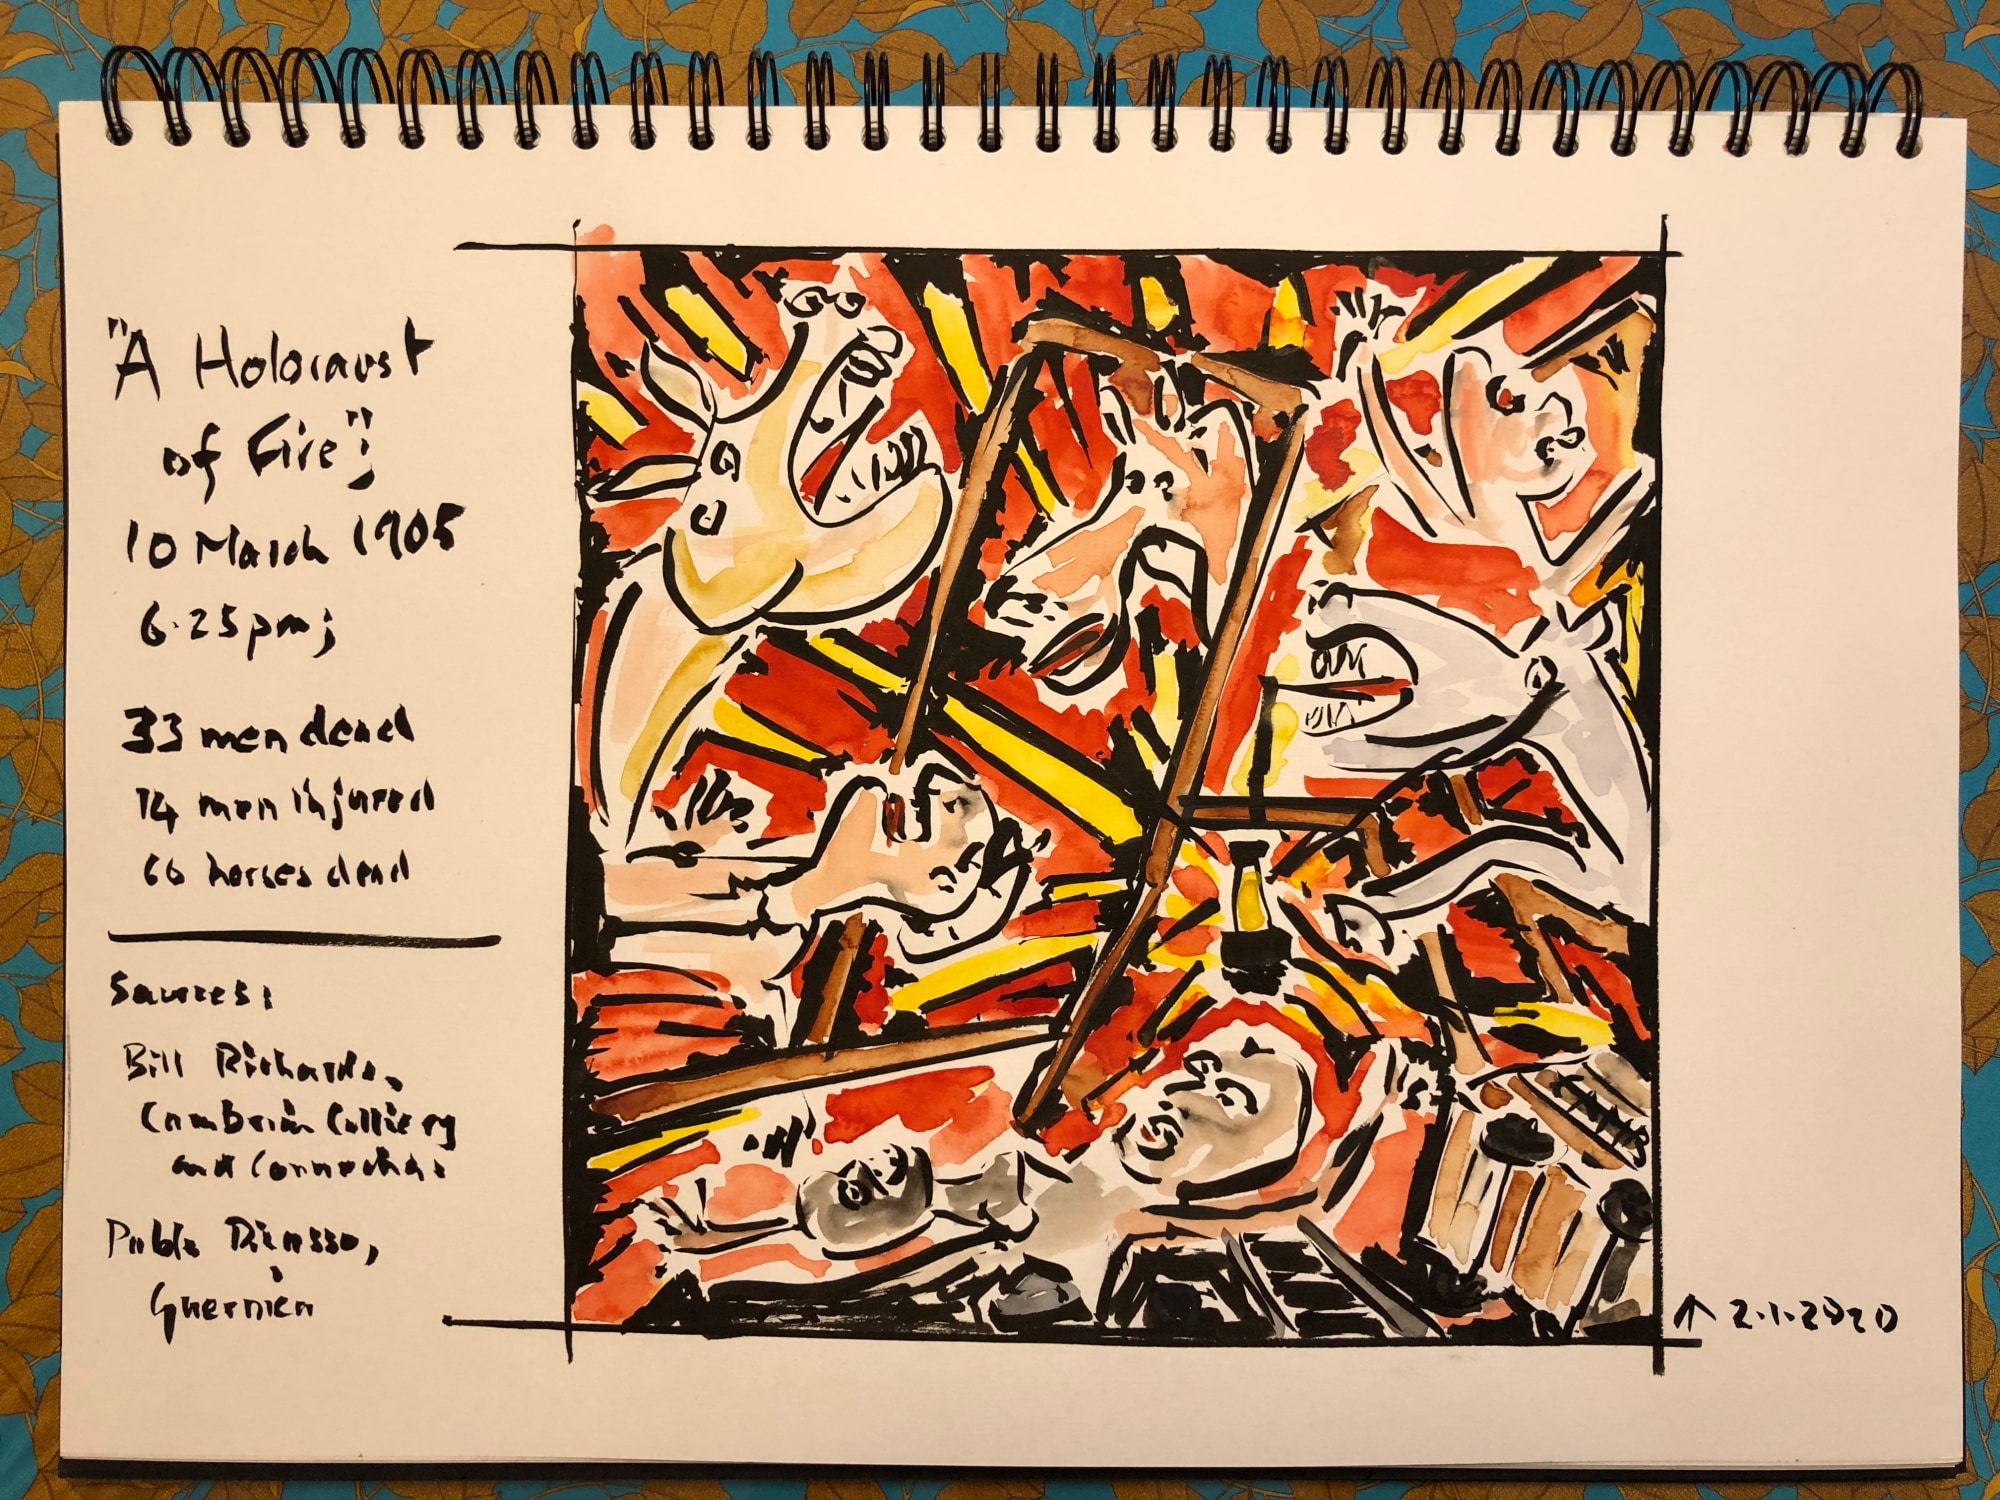 "A Holocaust
of Fire";
10 March 1905
6.25pm;
33 men dead
14 men injured
66 horses dead
Sources:
Bill Richards,
Cambrian Colliery
and Connections
Pablo Picasso,
Guernica
2.1.2020